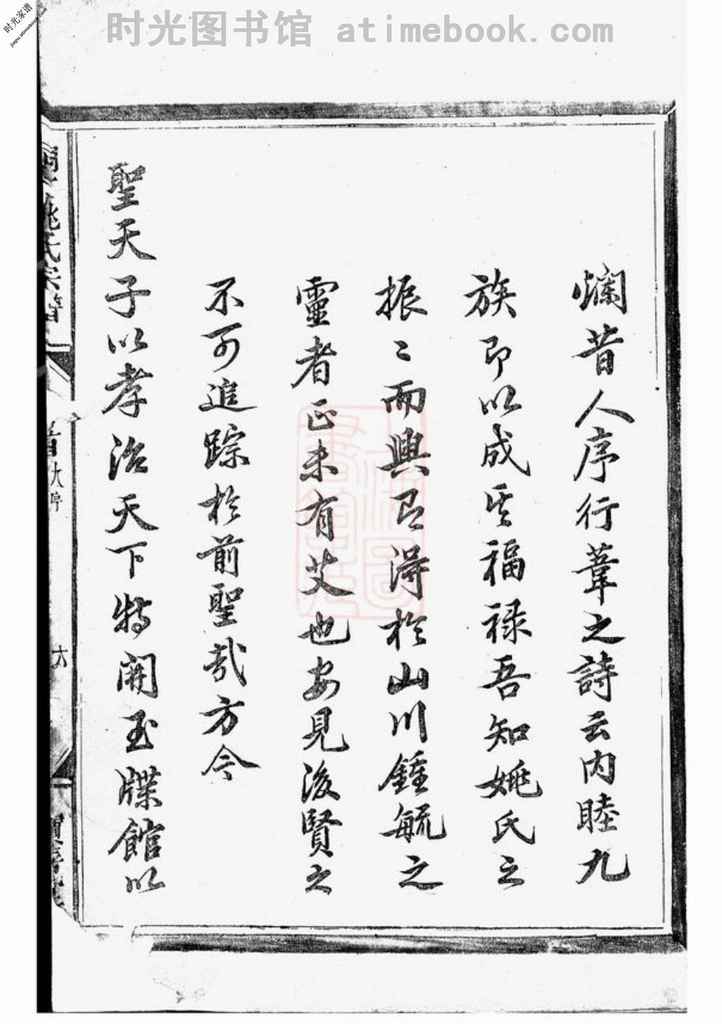 时光图书馆 atimebook.com
时光家谱
爛昔人序行葦之詩云內睦九
族即以成其福禄吾知姚氏之
振〻而興即得於山川鍾毓之
靈者正未有艾也安見後賢之
不可追踪於前聖哉方今
聖天子以孝治天下特開玉牒館以
姚氏宗譜